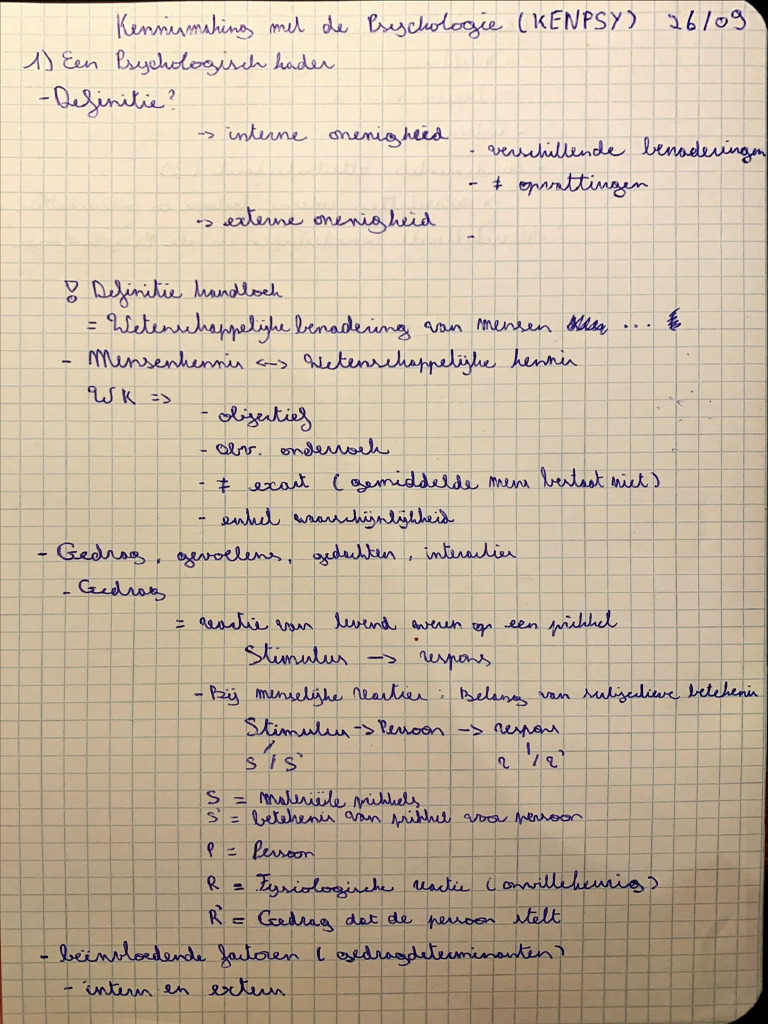 Kennismaking met de Psychologie (KENPSY) 26/09
1) Een Psychologisch kader
- Definitie?
-> interne onenigheid
- verschillende benaderingen
- ≠ opvattingen
-> externe onenigheid
-
! Definitie handboek
= Wetenschappelijke benadering van mensen ...
- Mensenkennis <-> Wetenschappelijke kennis
WK =>
- objectief
- obv. onderzoek
- ≠ exact (gemiddelde mens bestaat niet)
- enkel waarschijnlijkheid
- Gedrag, gevoelens, gedachten, interacties
- Gedrag
= reactie van levend wezen op een prikkel
Stimulus -> respons
- Bij menselijke reacties: Belang van subjectieve betekenis
Stimulus -> Persoon -> respons
S / S' r / r'
S = materiële prikkels
S' = betekenis van prikkel voor persoon
P = Persoon
R = Fysiologische reactie (onwillekeurig)
R' = Gedrag dat de persoon stelt
- beïnvloedende factoren (gedragdeterminanten)
- intern en extern